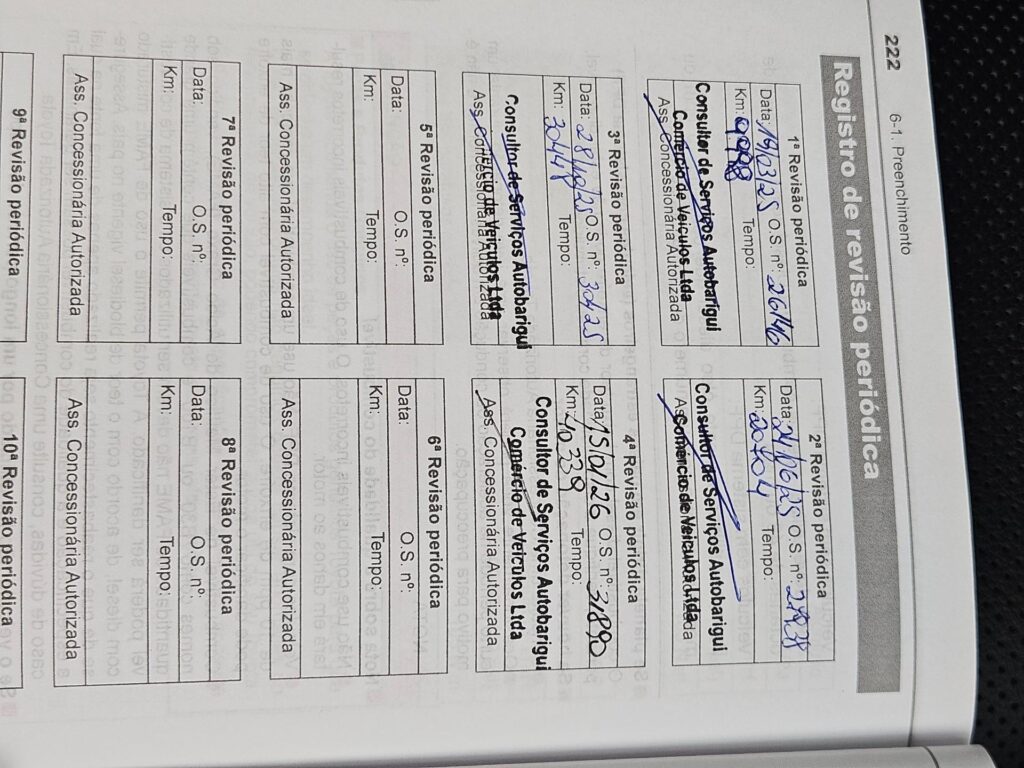 222
6-1. Preenchimento
Registro de revisão periódica
1ª Revisão periódica
Data: 19/03/25 O.S. nº: 26146
Km: 9998 Tempo:
Consultor de Serviços Autobarigui
Comércio de Veículos Ltda
Ass. Concessionária Autorizada
2ª Revisão periódica
Data: 24/06/25 O.S. nº:
Km: 20404 Tempo:
Consultor de Serviços Autobarigui
Comércio de Veículos Ltda
3ª Revisão periódica
Data: 28/10/25 O.S. nº: 30425
Km: 30448 Tempo:
Consultor de Serviços Autobarigui
Comércio de Veículos Ltda
Ass. Concessionária Autorizada
4ª Revisão periódica
Data: 15/01/26 O.S. nº: 31890
Km: 40339 Tempo:
Consultor de Serviços Autobarigui
Comércio de Veículos Ltda
Ass. Concessionária Autorizada
5ª Revisão periódica
Data: O.S. nº:
Km: Tempo:
Ass. Concessionária Autorizada
6ª Revisão periódica
Data: O.S. nº:
Km: Tempo:
Ass. Concessionária Autorizada
7ª Revisão periódica
Data: O.S. nº:
Km: Tempo:
Ass. Concessionária Autorizada
8ª Revisão periódica
Data: O.S. nº:
Km: Tempo:
Ass. Concessionária Autorizada
9ª Revisão periódica
10ª Revisão periódica